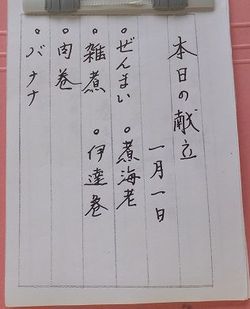 本日の献立
一月一日
。ぜんまい 。煮海老
。雑煮 。伊達巻
。肉巻
。バナナ